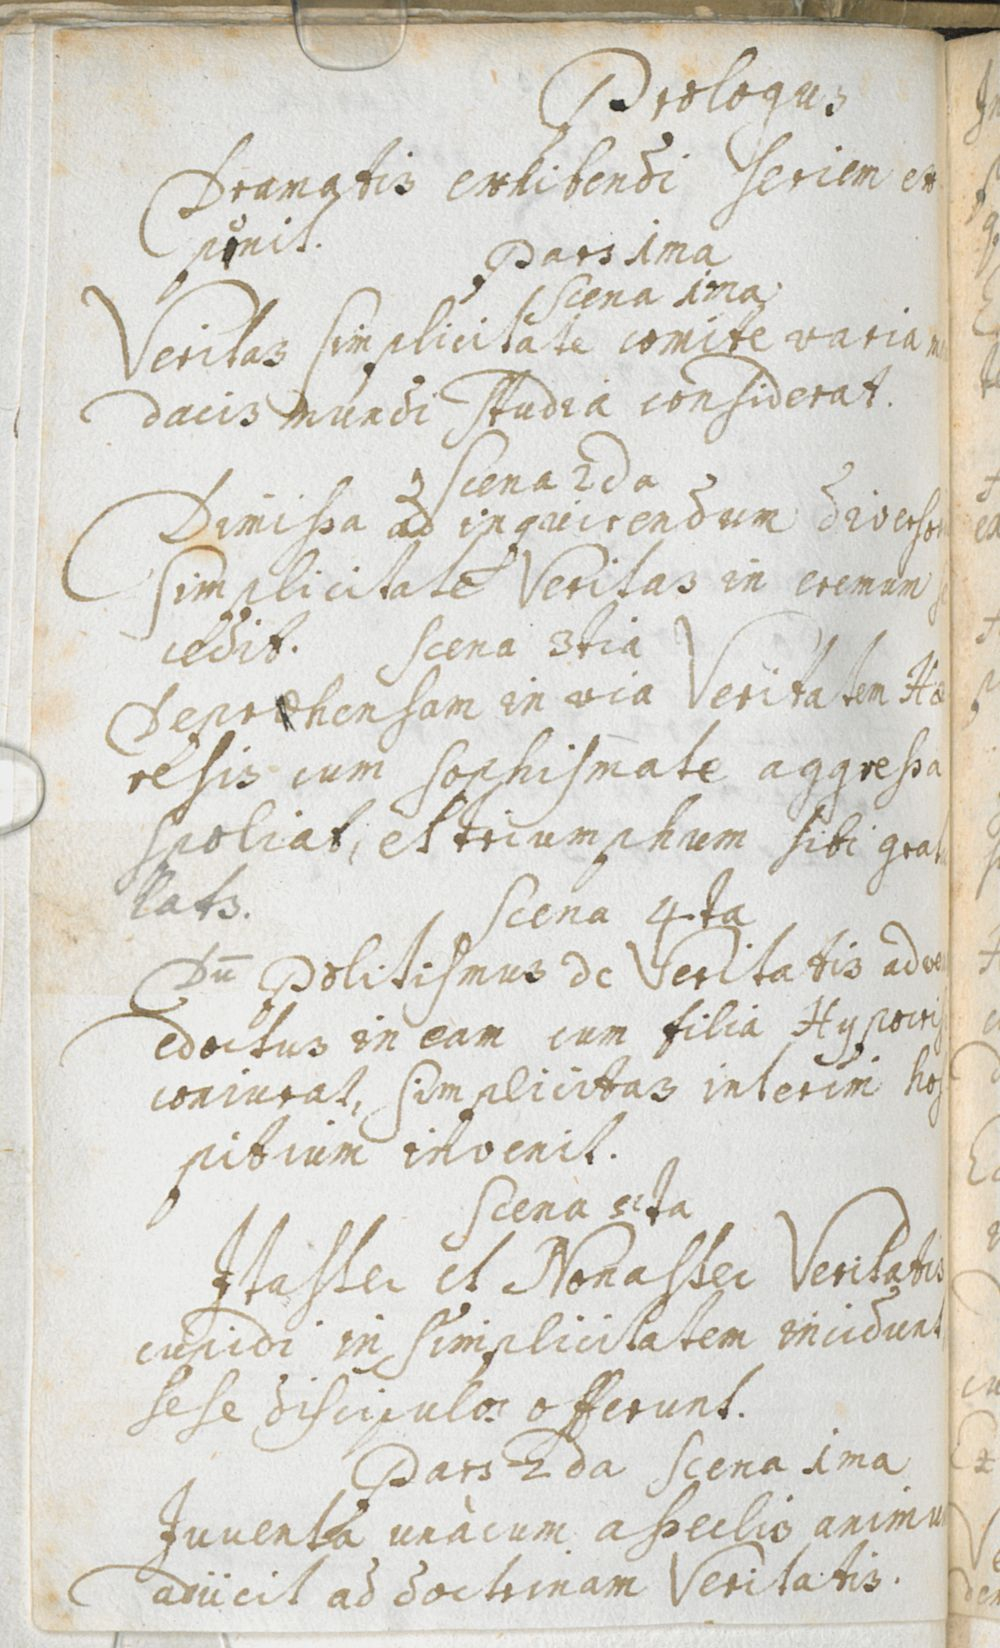 Prologus
Dramatis exhibendi seriem ex
ponit.
Pars 1ma
Scena 1ma
Veritas Simplicitate comite varia m
dacis mundi studia considerat.
Scena 2da
Dimissa ad inquirendum diverso
Simplicitate Veritas in eremum
cedit. Scena 3tia
Deprehensam in via Veritatem Hæ
resis cum sophismate aggressa
spoliat, et triumphum sibi grat
lats.
Scena 4ta
Dū Politismus de Veritatis adve
edoctus in eam cum filia Hypocris
coniurat, Simplicitas interim hos
pitium invenit.
Scena 5ta
Itaster et Nonaster Veritatis
cupidi in Simplicitatem incidunt
sese discipulos offerunt.
Pars 2da Scena 1ma
Juventa unàcum asseclis animu
adiicit ad doctrinam Veritatis.